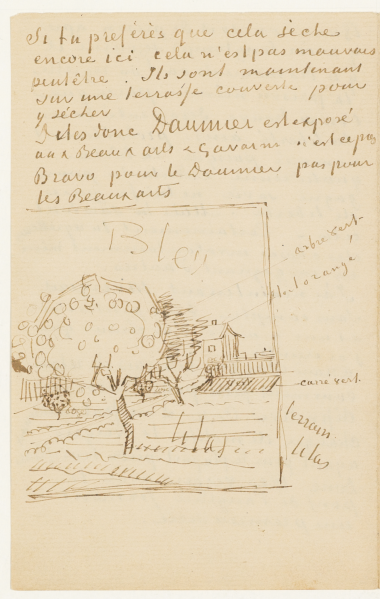 Si tu préfères que cela sèche
encore ici cela n'est pas mauvais
peutêtre. Ils sont maintenant
sur une terrasse couverte pour
y sécher
Dites donc Daumier est exposé
aux Beaux arts & Gavarni n'est ce pas
Bravo pour le Daumier pas pour
les Beaux arts
Bleu
arbre vert
toit orangé
carré vert
terrain
lilas
lilas